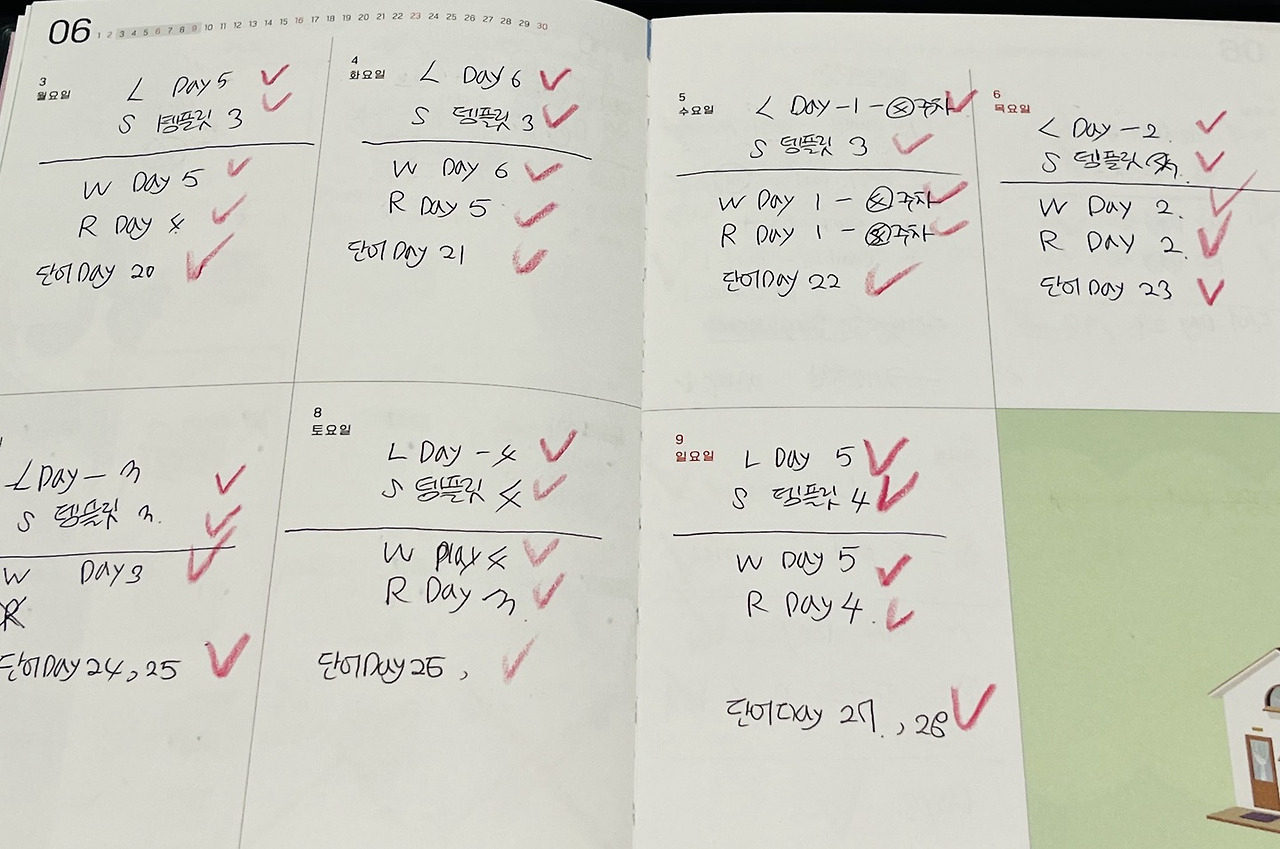 06 1 2 3 4 5 6 7 8 9 10 11 12 13 14 15 16 17 18 19 20 21 22 23 24 25 26 27 28 29 30
3
월요일
L Day 5
S 템플릿 3
W Day 5
R Day 4
단어 Day 20
4
화요일
L Day 6
S 템플릿 3
W Day 6
R Day 5
단어 Day 21
5
수요일
L Day - 1 - 주차
S 템플릿 3
W Day 1 - 주차
R Day 1 - 주차
단어 Day 22
6
목요일
L Day - 2
S 템플릿
W Day 2.
R Day 2.
단어 Day 23
L Day - 3
S 템플릿 3.
W Day 3
단어 Day 24, 25
8
토요일
L Day - 4
S 템플릿 4
W 4
R Day 3
단어 Day 26,
9
일요일
L Day 5
S 템플릿 4
W Day 5
R Day 4.
단어 Day 27. , 28